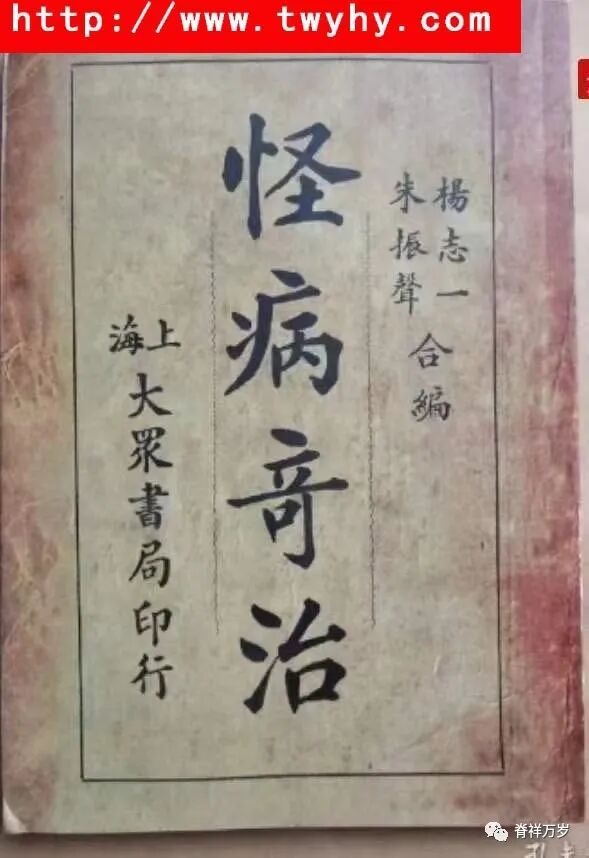 http://www.twyhy.com
楊志一
朱振聲
合編
怪病竒治
上海
大眾書局印行
脊祥万岁